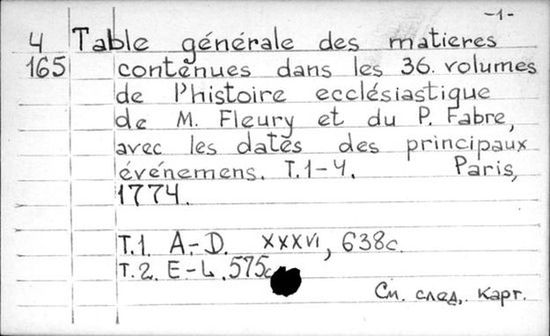 -1-
4 Table générale des matieres
165 contenues dans les 36. volumes
de l'histoire ecclésiastique
de M. Fleury et du P. Fabre,
avec les dates des principaux
événemens. T.1-4. Paris,
1774.
T.1. A.-D. XXXVI, 638c.
T.2. E-L. 575c
См. след. карт.